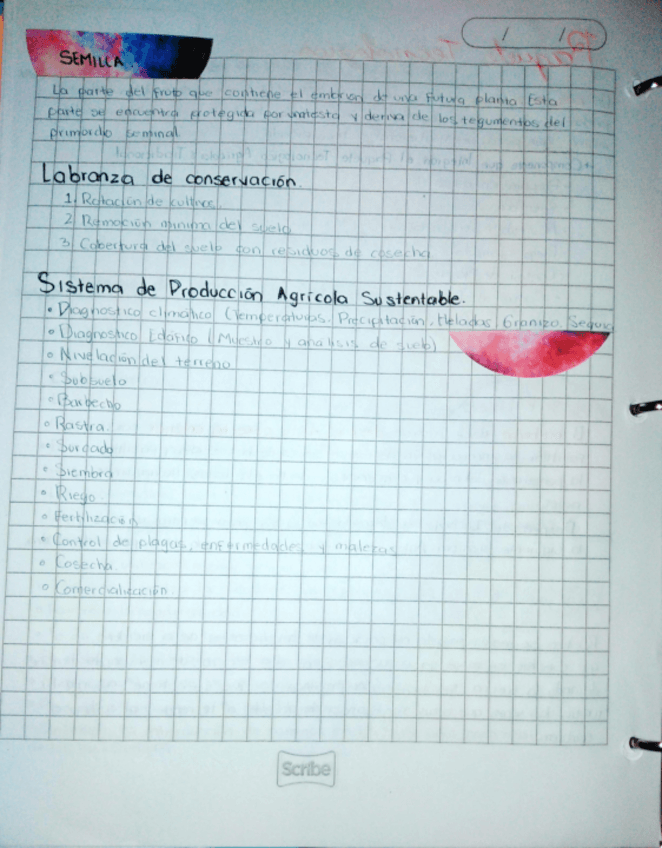 SEMILLA.
La parte del fruto que contiene el embrión de una futura planta. Esta
parte se encuentra protegida por una testa y deriva de los tegumentos del
primordio seminal.
Labranza de conservación.
1. Rotación de cultivos.
2. Remoción mínima del suelo
3. Cobertura del suelo con residuos de cosecha
Sistema de Producción Agrícola Sustentable.
• Diagnostico climático (Temperaturas. Precipitación. Heladas. Granizo. Sequia
• Diagnostico Edáfico (Muestreo y analisis de suelo)
• Nivelación del terreno
• Subsuelo
• Barbecho
• Rastra.
• Surcado
• Siembra
• Riego
• Fertilización
• Control de plagas, enfermedades y malezas
• Cosecha.
• Comercialización.
Scribe